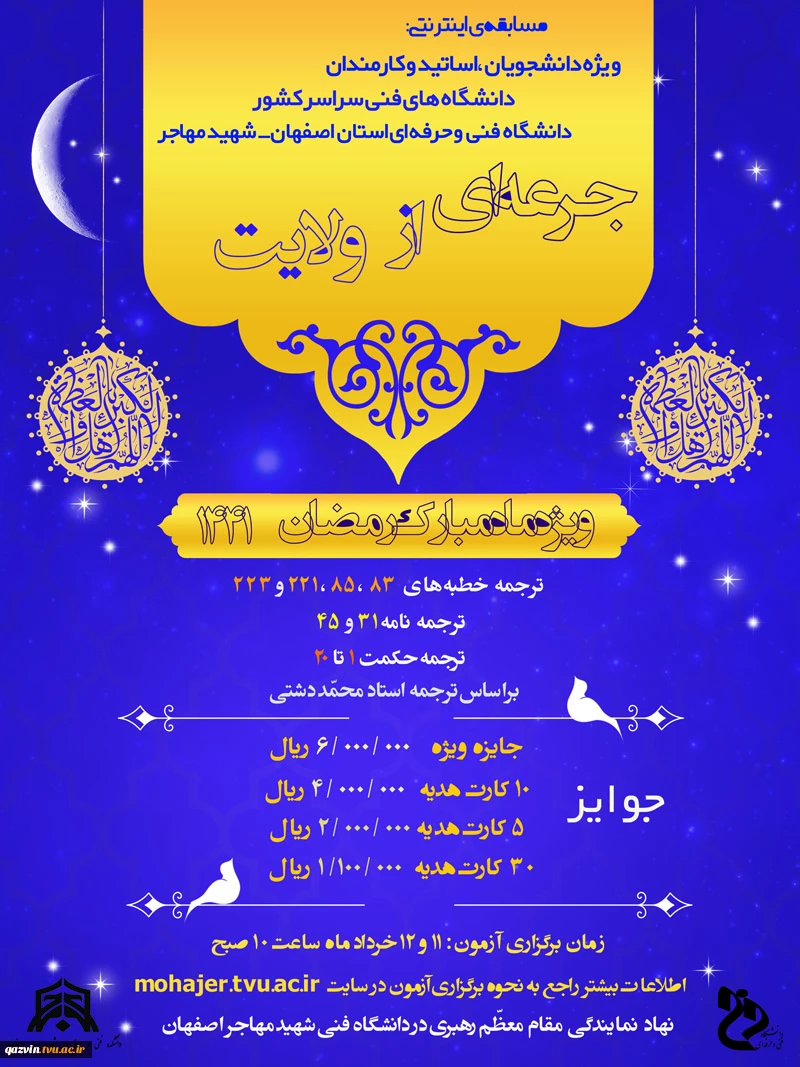 مسابقه‌ی اینترنتی:
ویژه دانشجویان، اساتید و کارمندان
دانشگاه های فنی سراسر کشور
دانشگاه فنی و حرفه ای استان اصفهان_ شهید مهاجر
جرعه‌ای از ولایت
ویژه ماه مبارک رمضان ۱۴۴۱
ترجمه خطبه های ۸۳، ۸۵، ۲۲۱ و ۲۲۳
ترجمه نامه ۳۱ و ۴۵
ترجمه حکمت ۱ تا ۲۰
براساس ترجمه استاد محمّد دشتی
جوایز
جایزه ویژه ۶/۰۰۰/۰۰۰ ریال
۱۰ کارت هدیه ۴/۰۰۰/۰۰۰ ریال
۵ کارت هدیه ۲/۰۰۰/۰۰۰ ریال
۳۰ کارت هدیه ۱/۱۰۰/۰۰۰ ریال
زمان برگزاری آزمون: ۱۱ و ۱۲ خرداد ماه ساعت ۱۰ صبح
اطلاعات بیشتر راجع به نحوه برگزاری آزمون در سایت mohajer.tvu.ac.ir
نهاد نمایندگی مقام معظّم رهبری در دانشگاه فنی شهید مهاجر اصفهان
qazvin.tvu.ac.ir